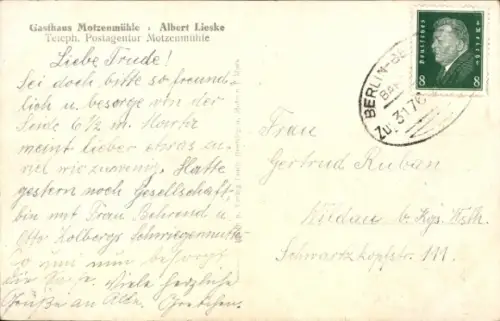 Gasthaus Motzenmühle · Albert Lieske
Teleph. Postagentur Motzenmühle
Liebe Trude!
Sei doch bitte so freund-
lich u. besorge von der
Seide 6½ m. Martha
meint lieber etwas zu-
viel wie zuwenig. Hatte
gestern noch Gesellschaft,
bin mit Frau Behrend u.
Otto Kolbergs Schwiegermutter
so
die
Viele herzliche
Grüße an Alle. Gretchen.
Deutsches Reich
8 8
BERLIN-
BAH
Zug 3176
Frau
Gertrud Kuban
Wildau b. Kgs. Wusth.
Schwartzkopfstr. 111.